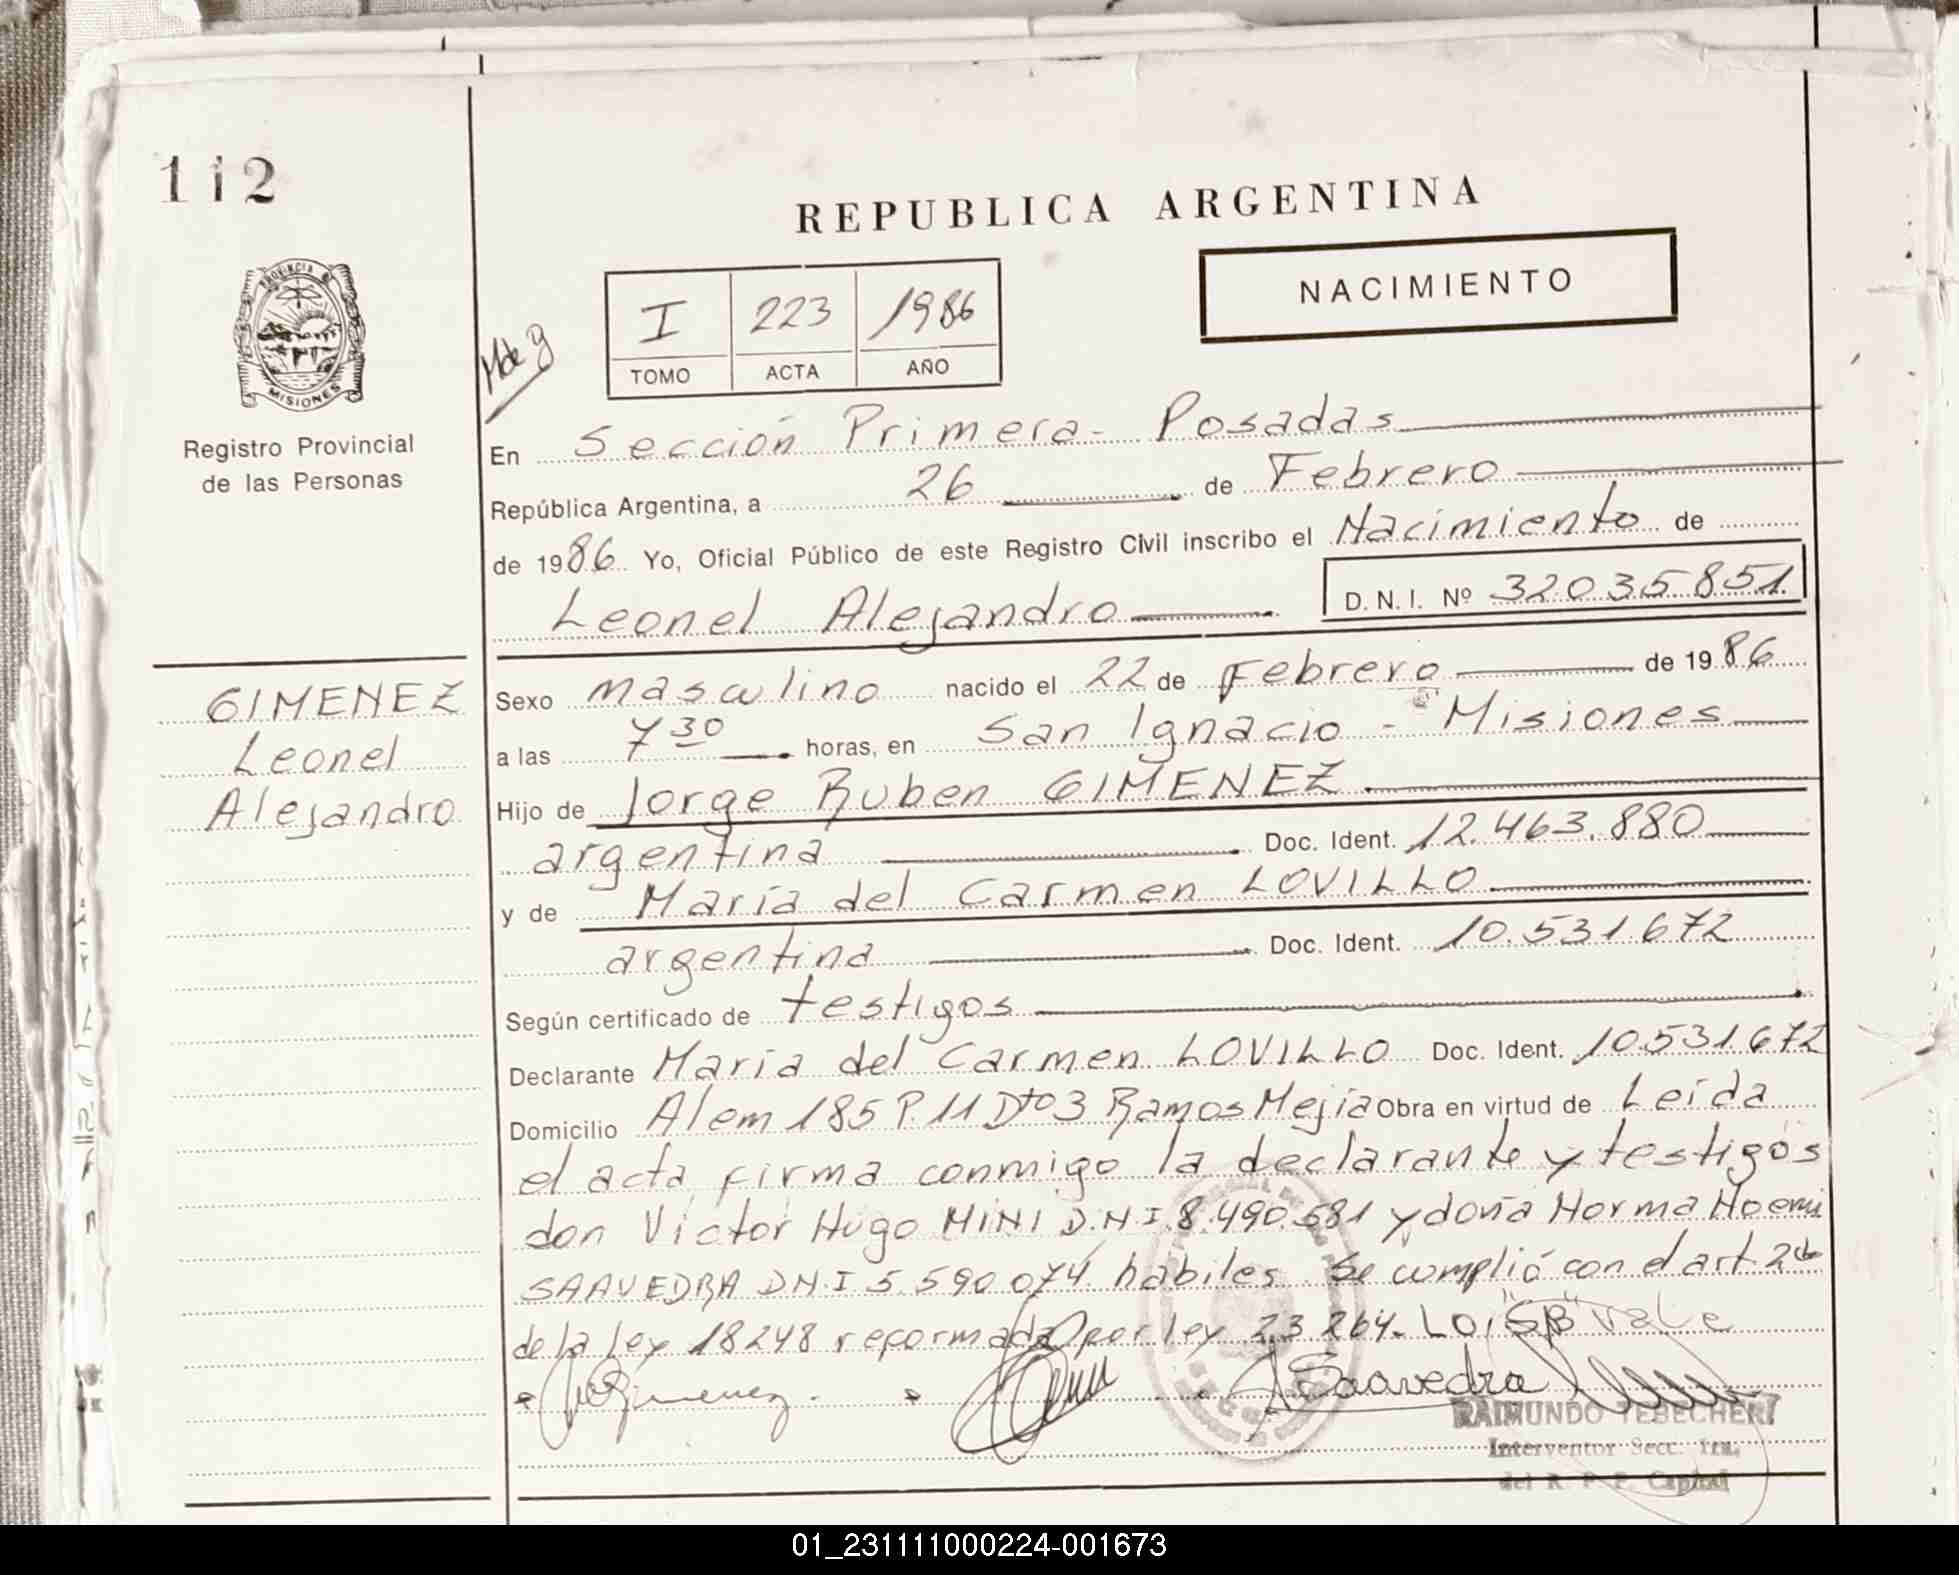 112
REPUBLICA ARGENTINA
NACIMIENTO
PROVINCIA DE
MISIONES
Registro Provincial
de las Personas
I 223 1986
TOMO ACTA AÑO
En Sección Primera - Posadas
República Argentina, a 26 de Febrero
de 1986 Yo, Oficial Público de este Registro Civil inscribo el Nacimiento de
Leonel Alejandro D.N.I. Nº 32035851
GIMENEZ
Leonel
Alejandro
Sexo masculino nacido el 22 de Febrero de 1986
a las 7 30 horas, en San Ignacio - Misiones
Hijo de Jorge Ruben GIMENEZ
argentina Doc. Ident. 12.463.880
y de María del Carmen LOVILLO
argentina Doc. Ident. 10.531.672
Según certificado de testigos
Declarante María del Carmen LOVILLO Doc. Ident. 10.531.672
Domicilio Alem 185 P.11 Dto 3 Ramos Mejía Obra en virtud de Leída
el acta firma conmigo la declarante y testigos
don Victor Hugo MINI D.N.I. 8.490.581 y doña Norma Noemi
SAAVEDRA D.N.I 5.590.074 habiles. Se cumplió con el art. 2do
de la Ley 18248 reformada por ley 23.264. LO, "SB" vale
Saavedra
RAIMUNDO TEBECHERI
Interventor Secc. 1ra.
del R. P. P. Capital
01_231111000224-001673